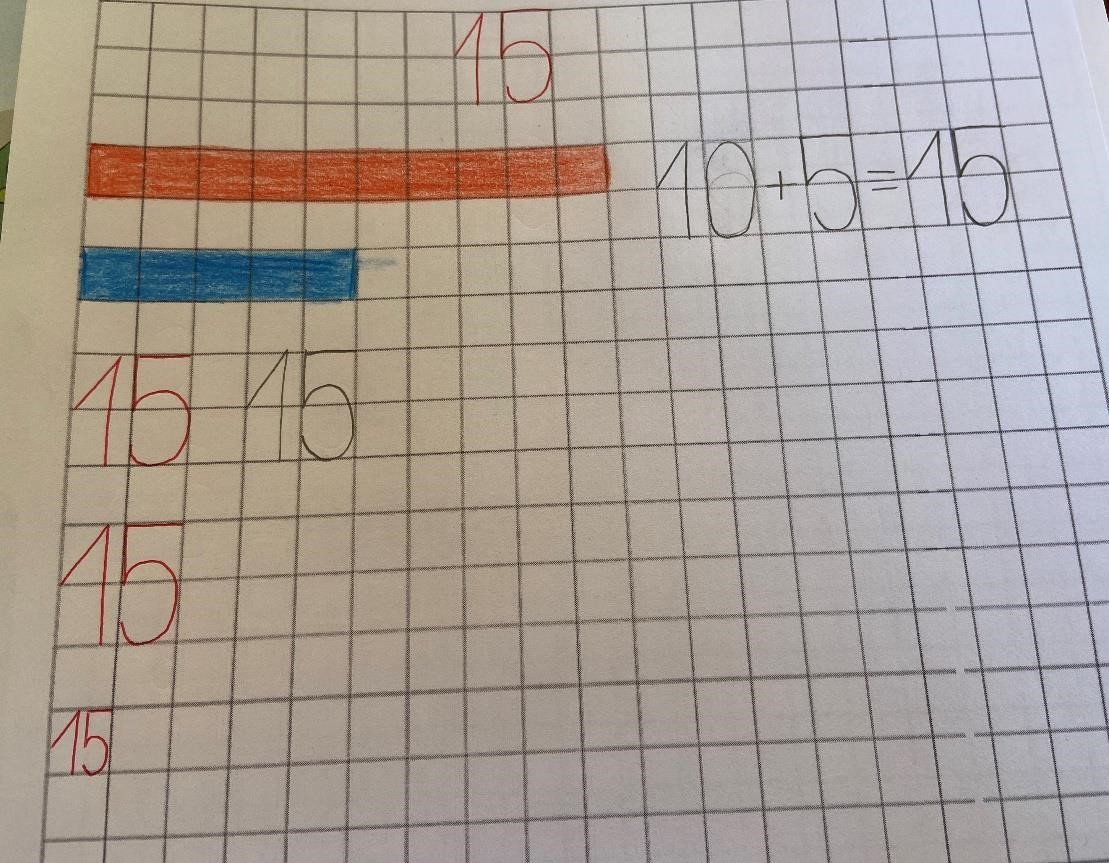 15
10+5=15
15 15
15
15